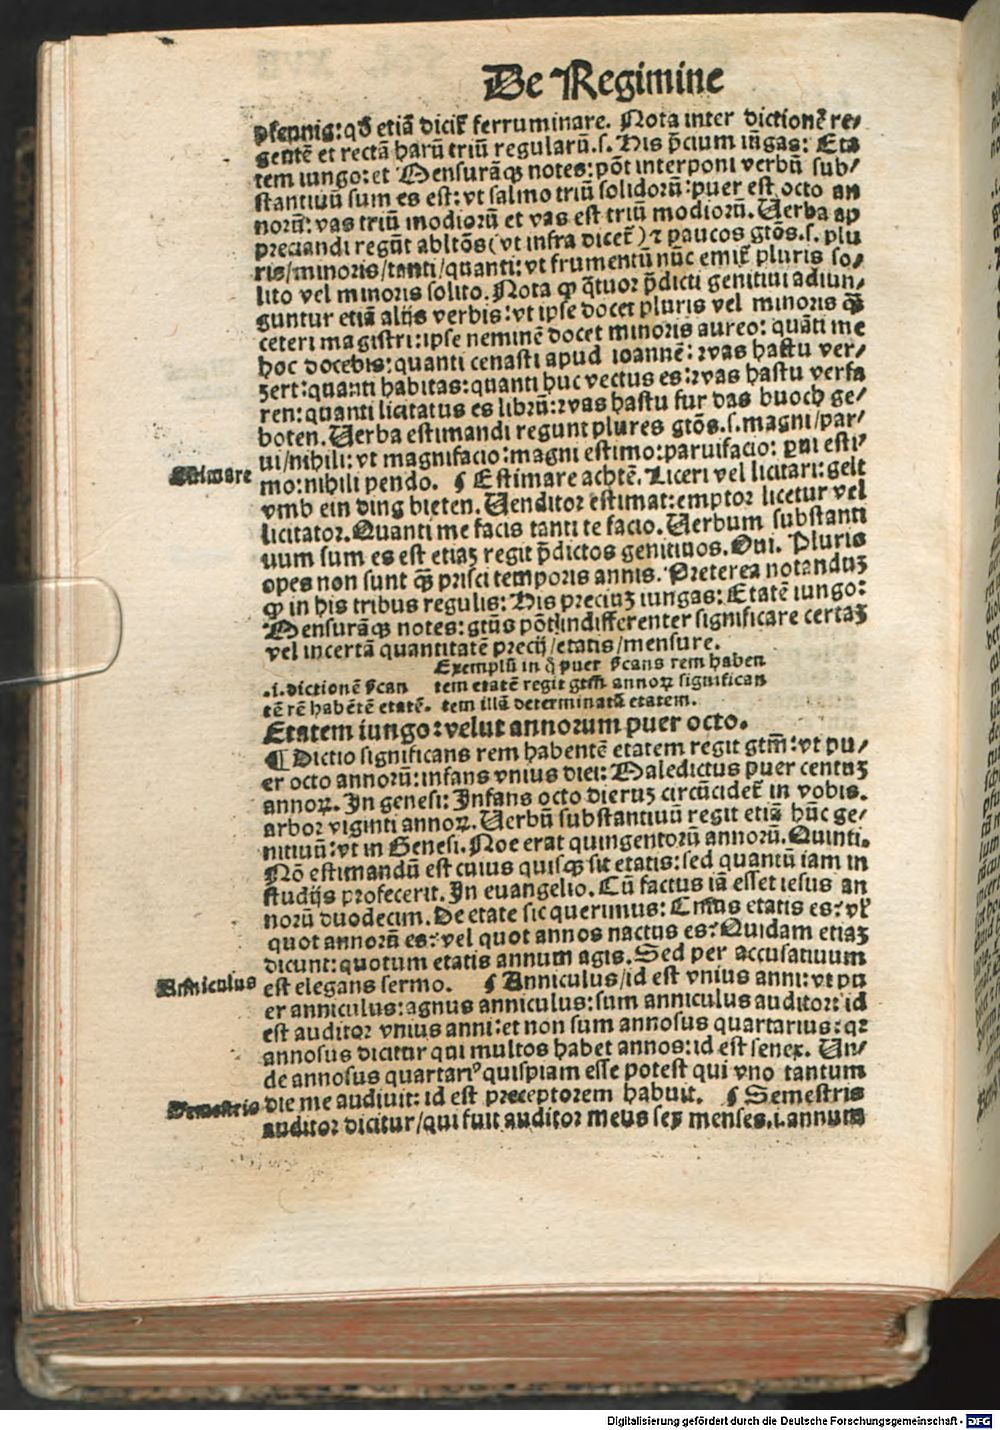 De Regimine
pfennig: qď etiã diciť ferruminare. Nota inter dictionẽ re⸗
gentẽ et rectã harũ triũ regularũ.ſ. His p̃cium iũgas: Eta
tem iungo: et Menſurãq̃ notes: põt interponi verbũ ſub⸗
ſtantiuũ ſum es eſt: vt ſalmo triũ ſolidorũ: puer eſt octo an
norũ: vas triũ modiorũ et vas eſt triũ modiorũ. Uerba ap
preciandi regũt abltõs (vt infra diceť) ⁊ paucos gtõs.ſ. plu
ris/minoris/tanti/quanti: vt frumentũ nũc emiť pluris ſo⸗
lito vel minoris ſolito. Nota ꝙ q̃tuor p̃dicti genitiui adiun⸗
guntur etiã alijs verbis: vt ipſe docet pluris vel minoris q̃
ceteri magiſtri: ipſe neminẽ docet minoris aureo: quãti me
hoc docebis: quanti cenaſti apud ioannẽ: was haſtu ver⸗
zert: quanti habitas: quanti huc vectus es: was haſtu verfa
ren: quanti licitatus es librũ: was haſtu fur das buoch ge⸗
boten. Uerba eſtimandi regunt plures gtõs.ſ. magni/par⸗
ui/nihili: vt magnifacio: magni eſtimo: paruifacio: pui eſti⸗
Eſtimare mo: nihili pendo. ¶ Eſtimare achtẽ. Liceri vel licitari: gelt
vmb ein ding bieten. Uenditor eſtimat: emptor licetur vel
licitator. Quanti me facis tanti te facio. Uerbum ſubſtanti
uum ſum es eſt etiaꝫ regit p̃dictos genitiuos. Oui. Pluris
opes non ſunt q̃ priſci temporis annis. Preterea notanduꝫ
ꝙ in his tribus regulis: His preciuꝫ iungas: Etatẽ iungo:
Menſurãq̃ notes: gtũs põt indifferenter ſignificare certaꝫ
vel incertã quantitatẽ precij/etatis/menſure.
Exemplũ in q̃ puer ſ̃cans rem haben
.i. dictionẽ ſ̃can tem etatẽ regit gtm̃ annoꝝ ſignifican
tẽ rẽ habẽtẽ etatẽ. tem illã determinatã etatem.
Etatem iungo: velut annorum puer octo.
¶ Dictio ſignificans rem habentẽ etatem regit gtm̃: vt pu⸗
er octo annorũ: infans vnius diei: Maledictus puer centuꝫ
annoꝝ. In geneſi: Infans octo dieruꝫ circũcideť in vobis.
arbor viginti annoꝝ. Uerbũ ſubſtantiuũ regit etiã hũc ge⸗
nitiuũ: vt in Geneſi. Noe erat quingentorũ annorũ. Quinti.
Nõ eſtimandũ eſt cuius quiſq̃ ſit etatis: ſed quantũ iam in
ſtudijs profecerit. In euangelio. Cũ factus iã eſſet ieſus an
norũ duodecim. De etate ſic querimus: Cuius etatis es: vľ
quot annorũ es: vel quot annos nactus es: Quidam etiaꝫ
dicunt: quotum etatis annum agis. Sed per accuſatiuum
Anniculus eſt elegans ſermo. ¶ Anniculus/id eſt vnius anni: vt pu
er anniculus: agnus anniculus: ſum anniculus auditor: id
eſt auditor vnius anni: et non ſum annoſus quartarius: qꝛ
annoſus dicitur qui multos habet annos: id eſt ſenex. Un⸗
de annoſus quartariꝰ quiſpiam eſſe poteſt qui vno tantum
Semeſtris die me audiuit: id eſt preceptorem habuit. ¶ Semeſtris
auditor dicitur/qui fuit auditor meus ſex menſes.i. annum
Digitalisierung gefördert durch die Deutsche Forschungsgemeinschaft - DFG